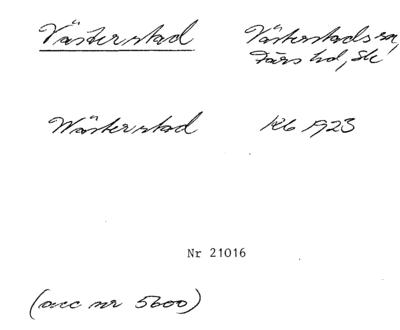 Västerstad Västerstads sn,
Färs hd, Sk
Wästerstad Kb 1923
Nr 21016
(acc nr 5600)